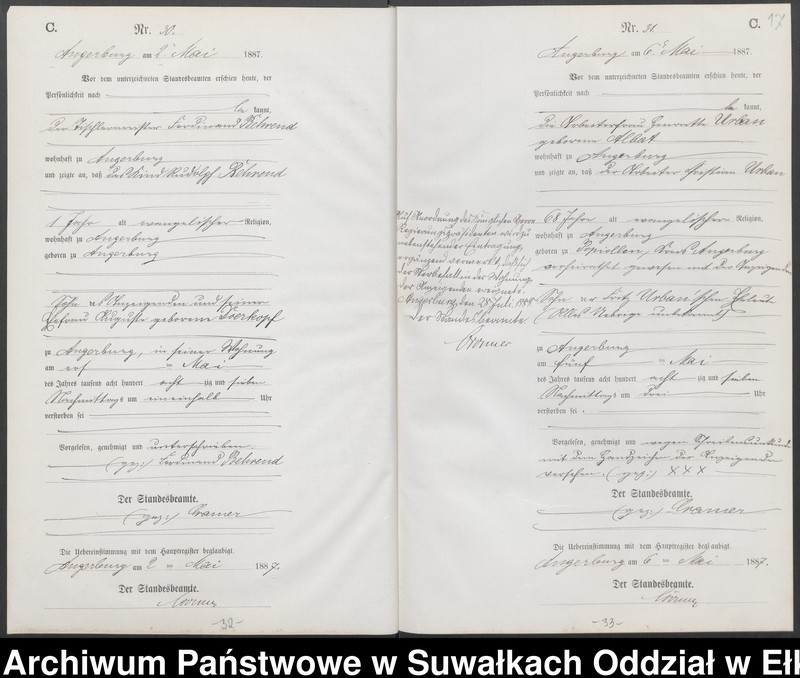 C.
Nr. 30.
Angerburg am 2ᵗ Mai 1887.
Vor dem unterzeichneten Standesbeamten erschien heute, der
Persönlichkeit nach
be kannt,
der Tischlermeister Ferdinand Behrend
wohnhaft zu Angerburg
und zeigte an, daß das Kind Rudolph Behrend
1 Jahr alt evangelischer Religion,
wohnhaft zu Angerburg
geboren zu Angerburg
Sohn des Anzeigenden und seiner
Ehefrau Auguste geborene
zu Angerburg, in seiner Wohnung
am ten Mai
des Jahres tausend acht hundert acht zig und sieben
Nachmittags um eineinhalb Uhr
verstorben sei
Vorgelesen, genehmigt und unterschrieben.
(gez:) Ferdinand Behrend
Der Standesbeamte.
(gez:) Cramer
Die Uebereinstimmung mit dem Hauptregister beglaubigt.
Angerburg am 2 ten Mai 1887.
Der Standesbeamte.
-32-
C. 17
Nr. 31.
Angerburg am 6ᵗ Mai 1887.
Vor dem unterzeichneten Standesbeamten erschien heute, der
Persönlichkeit nach
be kannt,
die Arbeiterfrau Henriette Urban
geborene Albat
wohnhaft zu Angerburg
und zeigte an, daß der Arbeiter Urban
68 Jahr alt evangelischer Religion,
wohnhaft zu Angerburg
geboren zu Popiollen, Kreis Angerburg
verheirathet gewesen mit der Anzeigenden
Sohn des Fritz Urban
(Alles Uebrige unbekannt)
zu Angerburg
am fünf ten Mai
des Jahres tausend acht hundert acht zig und sieben
Nachmittags um drei Uhr
verstorben sei.
Vorgelesen, genehmigt und wegen Schreibensunkunde
mit dem Handzeichen der Anzeigenden
versehen. (gez:) XXX
Der Standesbeamte.
(gez:) Cramer
Die Uebereinstimmung mit dem Hauptregister beglaubigt.
Angerburg am 6 ten Mai 1887.
Der Standesbeamte.
-33-
Auf Anordnung des Königlichen Herrn
Regierungspräsidenten wird zu
nebenstehender Eintragung
ergänzend vermerkt, daß sich
der Sterbefall in der Wohnung
der Anzeigenden ereignete.
Angerburg, den 28 Juli 1888
Der Standesbeamte.
Archiwum Państwowe w Suwałkach Oddział w Ełk